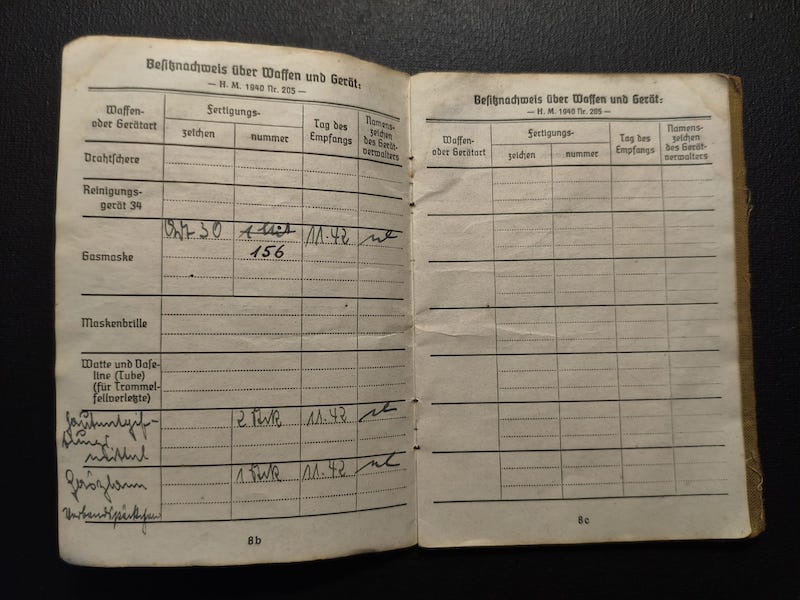 Besitznachweis über Waffen und Gerät:
— H. M. 1940 Nr. 205 —
Waffen-
oder Gerätart
Fertigungs-
zeichen
nummer
Tag des
Empfangs
Namens-
zeichen
des Gerät-
verwalters
Drahtschere
Reinigungs-
gerät 34
Gasmaske
30
11.42
156
Maskenbrille
Watte und Vase-
line (Tube)
(für Trommel-
fellverletzte)
Hautentgif-
tungs
mittel
2
11.42
1
11.42
Verbandspäckchen
8b
Besitznachweis über Waffen und Gerät:
— H. M. 1940 Nr. 205 —
Waffen-
oder Gerätart
Fertigungs-
zeichen
nummer
Tag des
Empfangs
Namens-
zeichen
des Gerät-
verwalters
8c